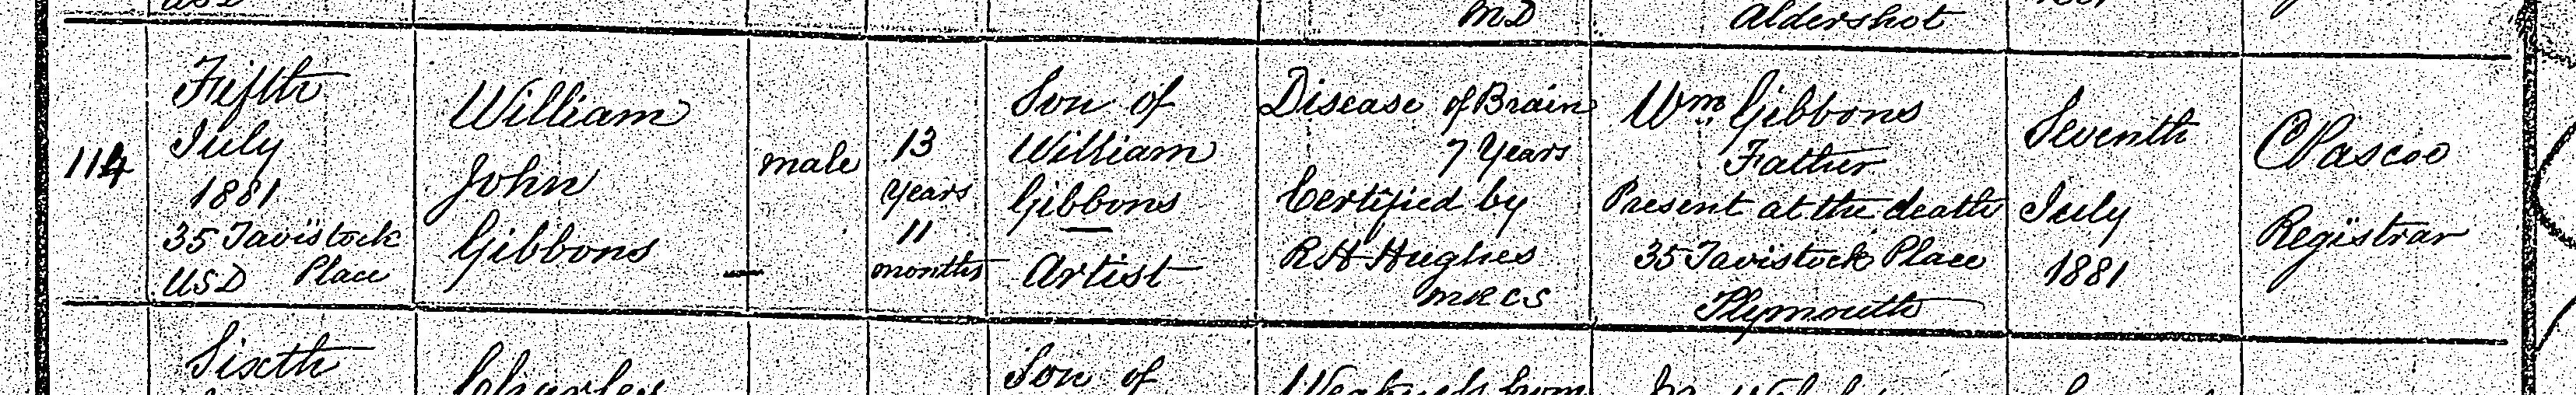 MD
Aldershot
114
Fifth
July
1881
35 Tavistock
Place
USD
William
John
Gibbons
male
13
years
11
months
Son of
William
Gibbons
Artist
Disease of Brain
7 Years
Certified by
R H Hughes
MRCS
Wm. Gibbons
Father
Present at the death
35 Tavistock Place
Plymouth
Seventh
July
1881
C Pascoe
Registrar
Sixth
Charles
Son of
from